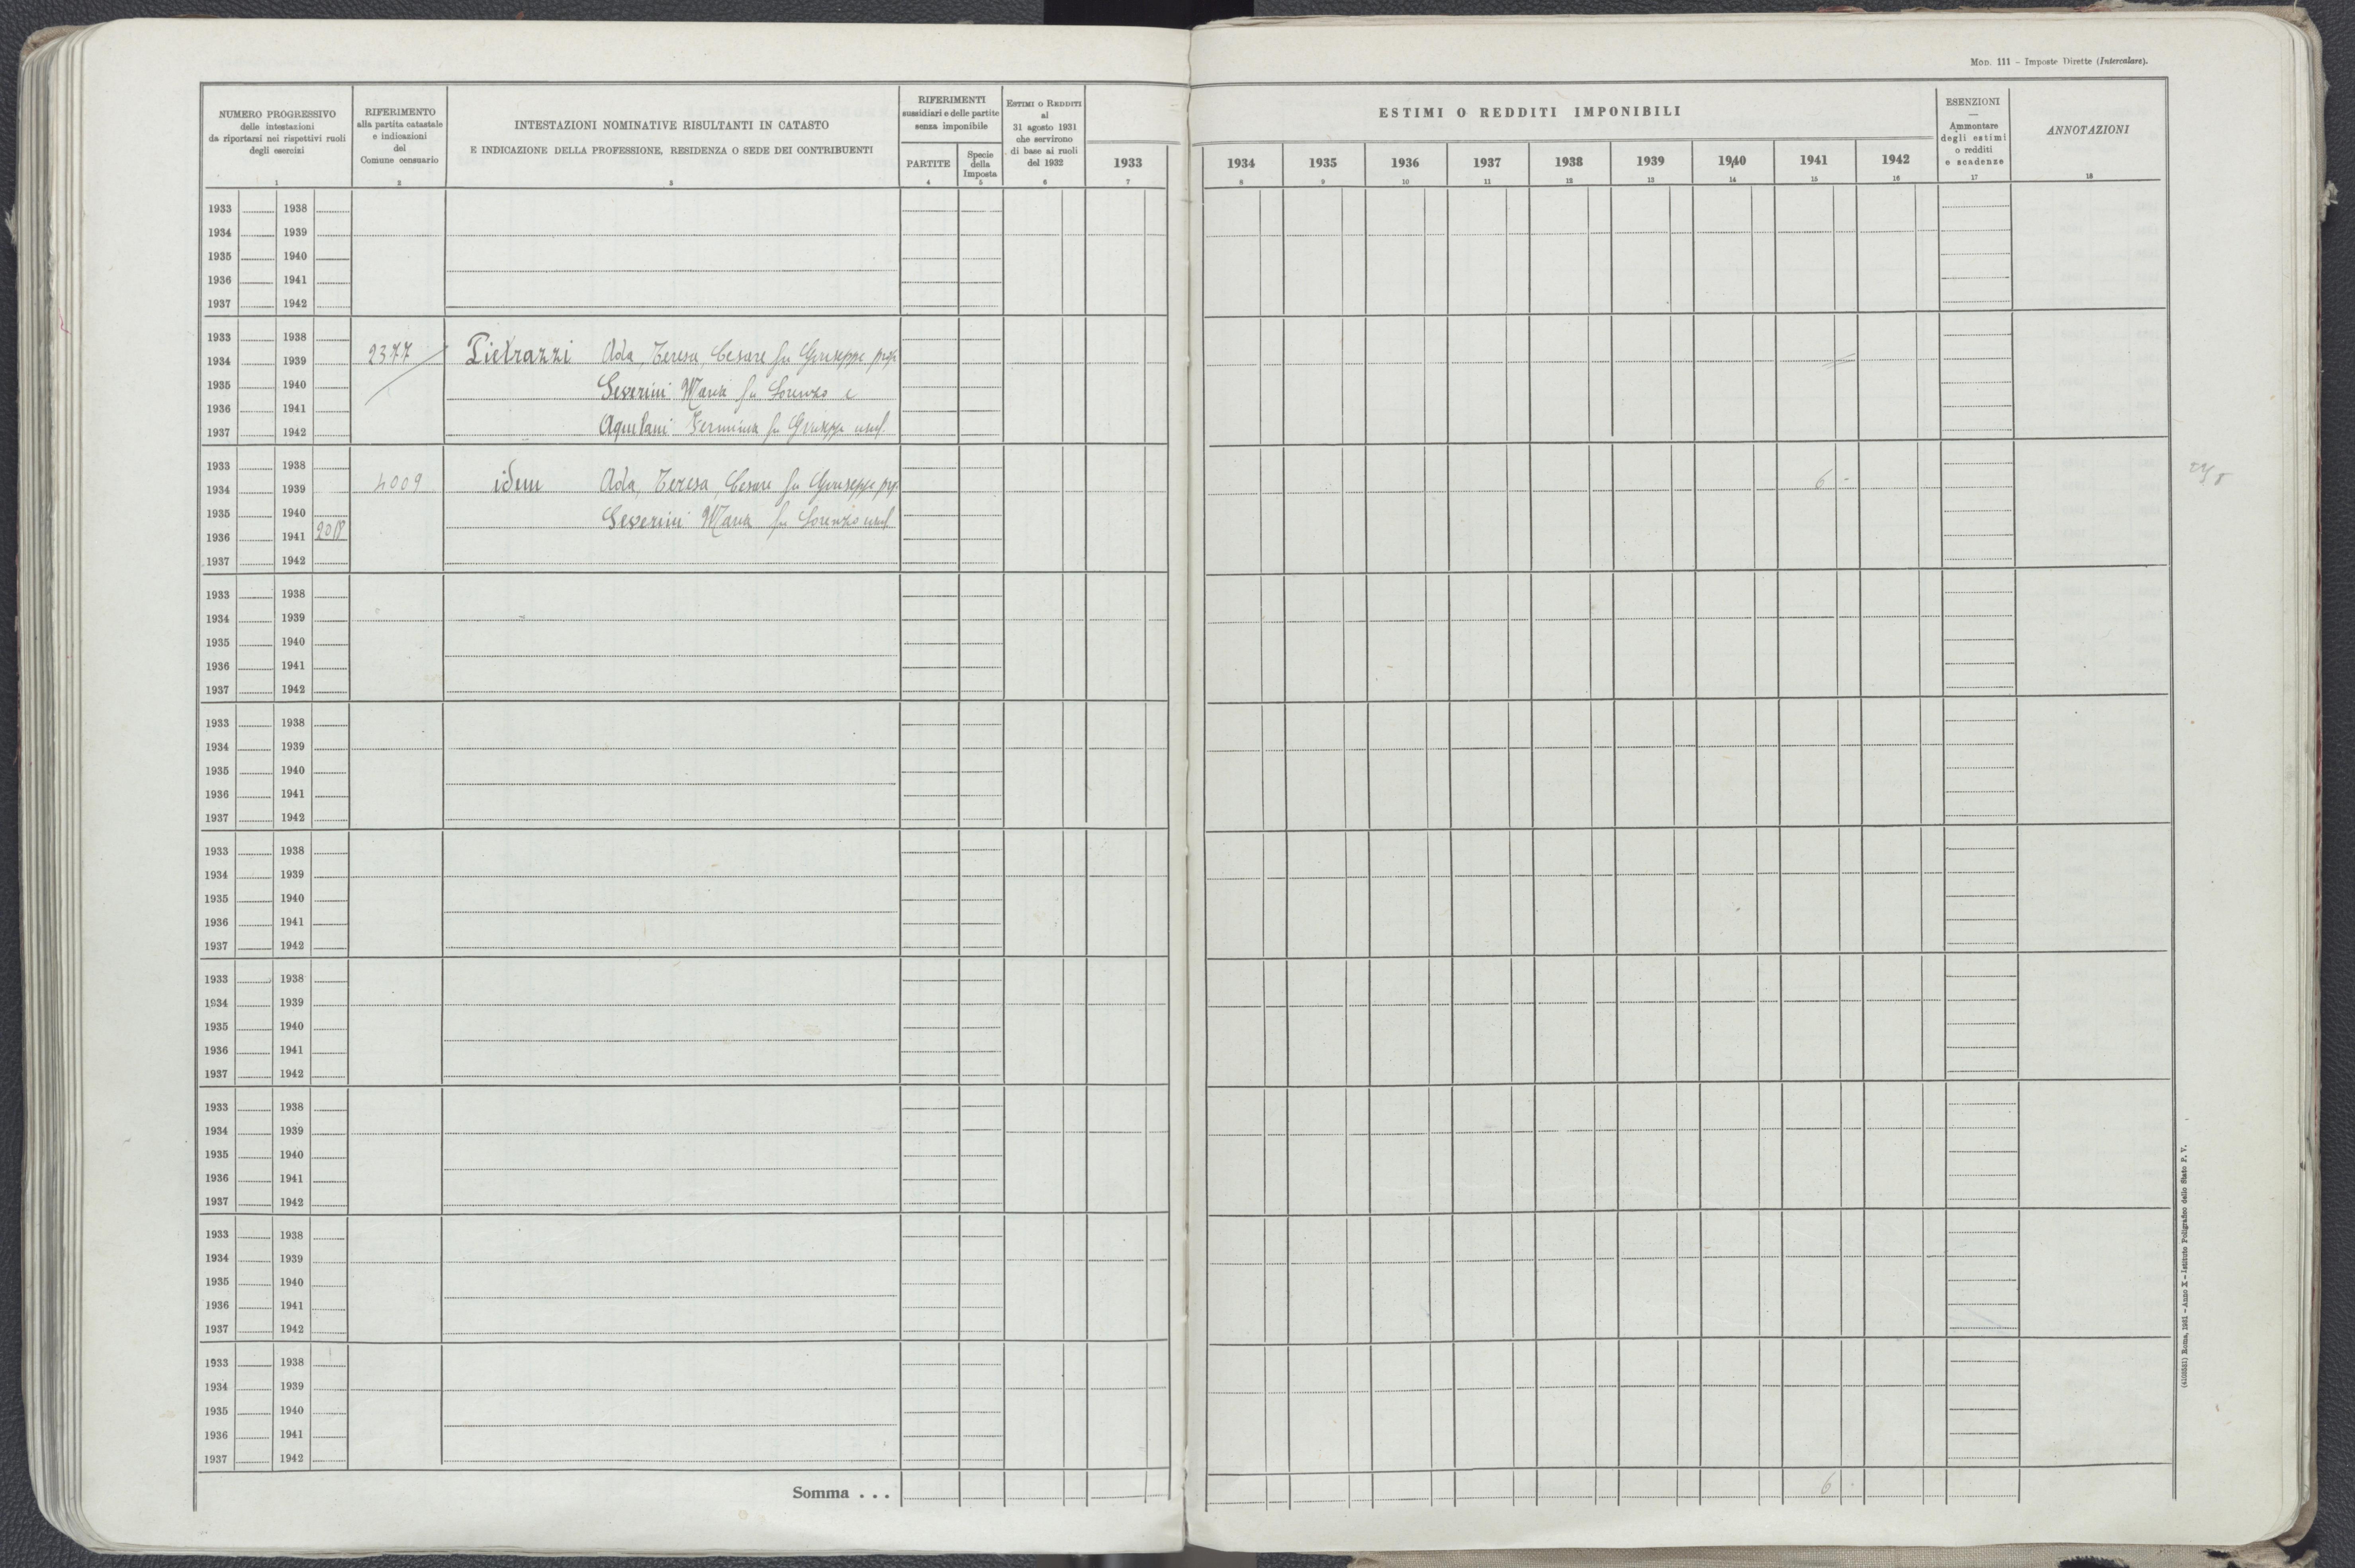 Mod. 111 – Imposte Dirette (Intercalare).
NUMERO PROGRESSIVO
delle intestazioni
da riportarsi nei rispettivi ruoli
degli esercizi
1
RIFERIMENTO
alla partita catastale
e indicazioni
del
Comune censuario
2
INTESTAZIONI NOMINATIVE RISULTANTI IN CATASTO
E INDICAZIONE DELLA PROFESSIONE, RESIDENZA O SEDE DEI CONTRIBUENTI
3
RIFERIMENTI
sussidiari e delle partite
senza imponibile
PARTITE
4
Specie
della
Imposta
5
Estimi o Redditi
al
31 agosto 1931
che servirono
di base ai ruoli
del 1932
6
1933
7
ESTIMI O REDDITI IMPONIBILI
1934 1935 1936 1937 1938 1939 1940 1941 1942
8 9 10 11 12 13 14 15 16
ESENZIONI
—
Ammontare
degli estimi
o redditi
e scadenze
17
ANNOTAZIONI
18
1933 1938
1934 1939
1935 1940
1936 1941
1937 1942
1933 1938
1934 1939 2377 Pietrazzi Ada, Teresa, Cesare fu Giuseppe prop.
1935 1940 Severini Maria fu Lorenzo e
1936 1941
1937 1942 Aquilani Fermina fu Giuseppe usuf.
1933 1938
1934 1939 4009 idem Ada, Teresa, Cesare fu Giuseppe prop. 6 -
1935 1940 Severini Maria fu Lorenzo usuf.
1936 1941 2018
1937 1942
1933 1938
1934 1939
1935 1940
1936 1941
1937 1942
1933 1938
1934 1939
1935 1940
1936 1941
1937 1942
1933 1938
1934 1939
1935 1940
1936 1941
1937 1942
1933 1938
1934 1939
1935 1940
1936 1941
1937 1942
1933 1938
1934 1939
1935 1940
1936 1941
1937 1942
1933 1938
1934 1939
1935 1940
1936 1941
1937 1942
1933 1938
1934 1939
1935 1940
1936 1941
1937 1942
Somma . . . 6 -
Roma, 1931 – Anno X – Istituto Poligrafico dello Stato P. V.